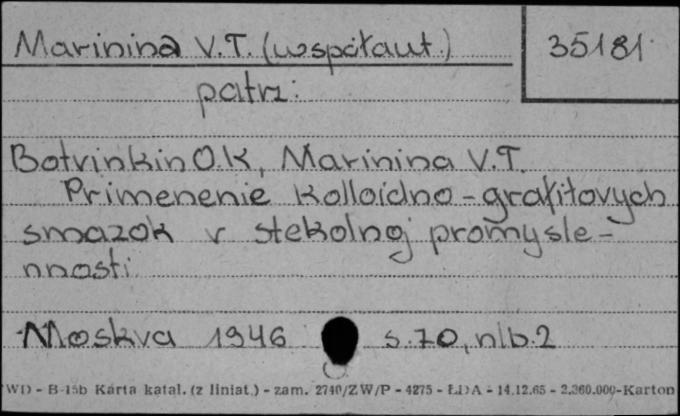 Marinina V.T. (współaut.) 35181
patrz:
Botvinkin O.K, Marinina V.T.
Primenenie kolloidno-grafitovych
smazok v stekolnoj promysle-
nnosti
Moskva 1946 s.70, nlb.2
WD - B-15b Karta katal. (z liniat.) - zam. 2740/ZW/P - 4275 - ŁDA - 14.12.65 - 2.360.000-Karton